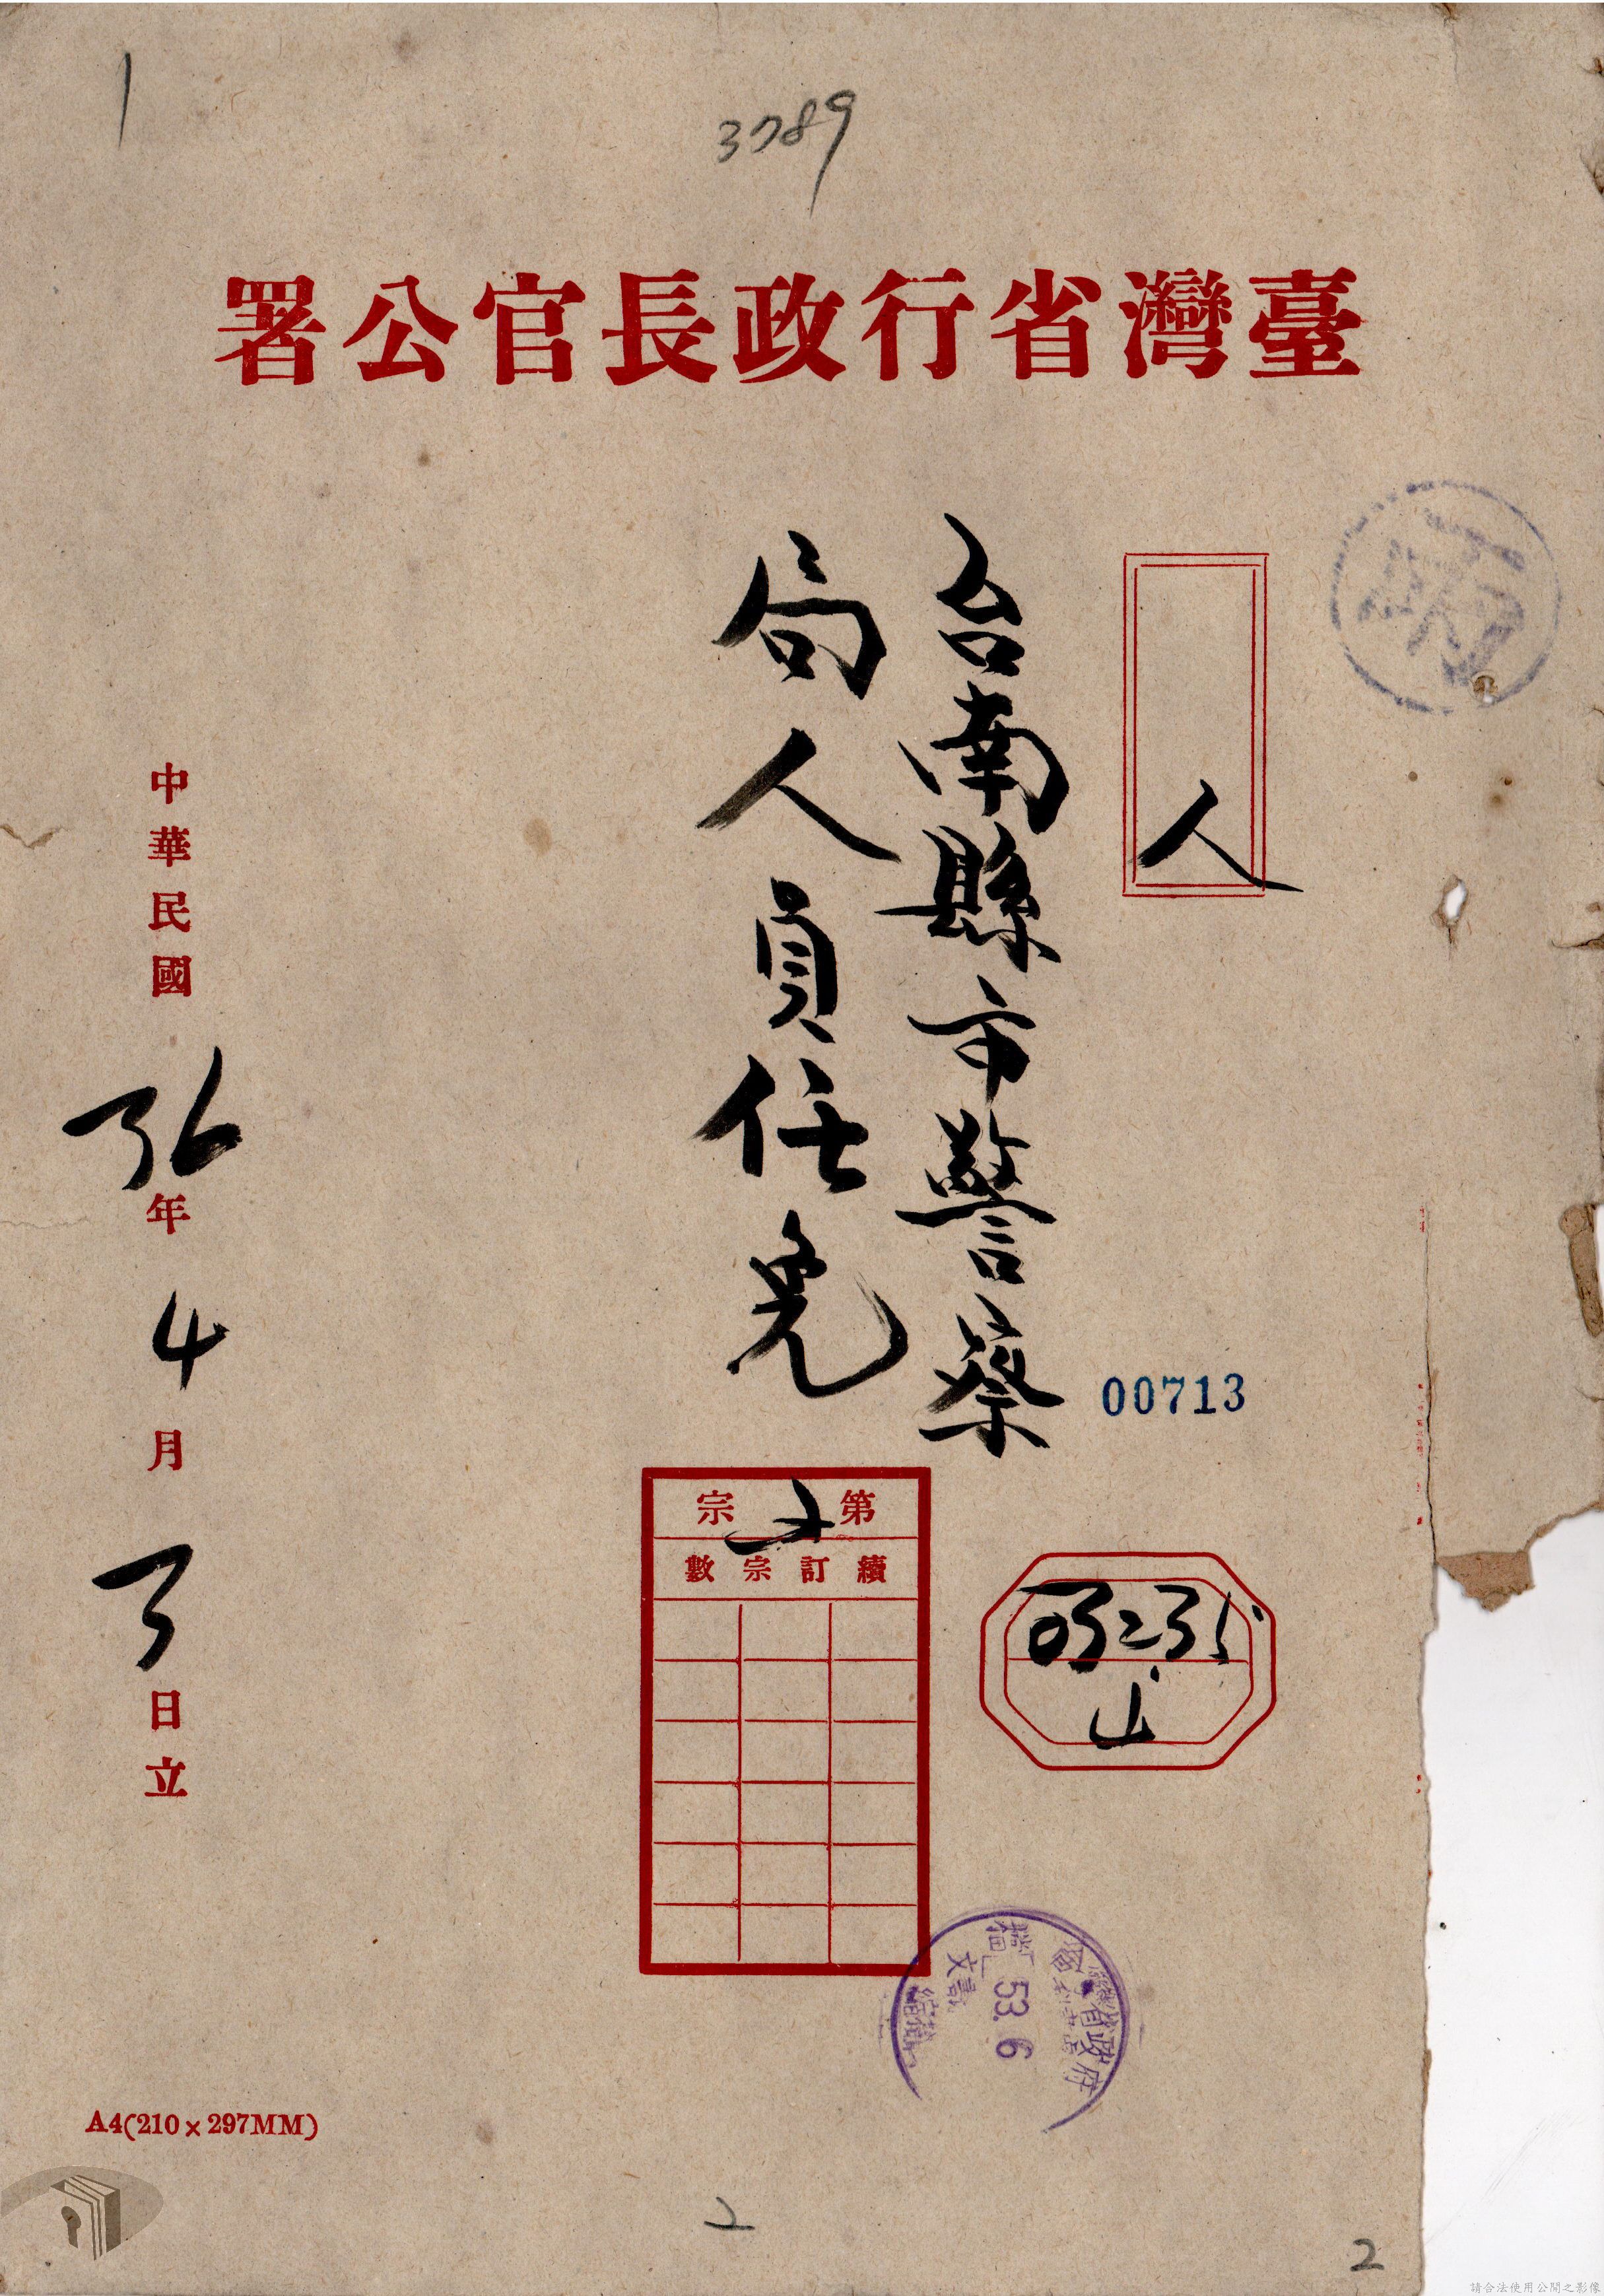 1
3789
臺灣省行政長官公署
人
台南縣市警察
局人員任免
00713
第2宗
續訂宗數
03235
4
中華民國36年4月3日立
臺灣省政府
53.6
A4(210×297MM)
2
2
請合法使用公開之影像